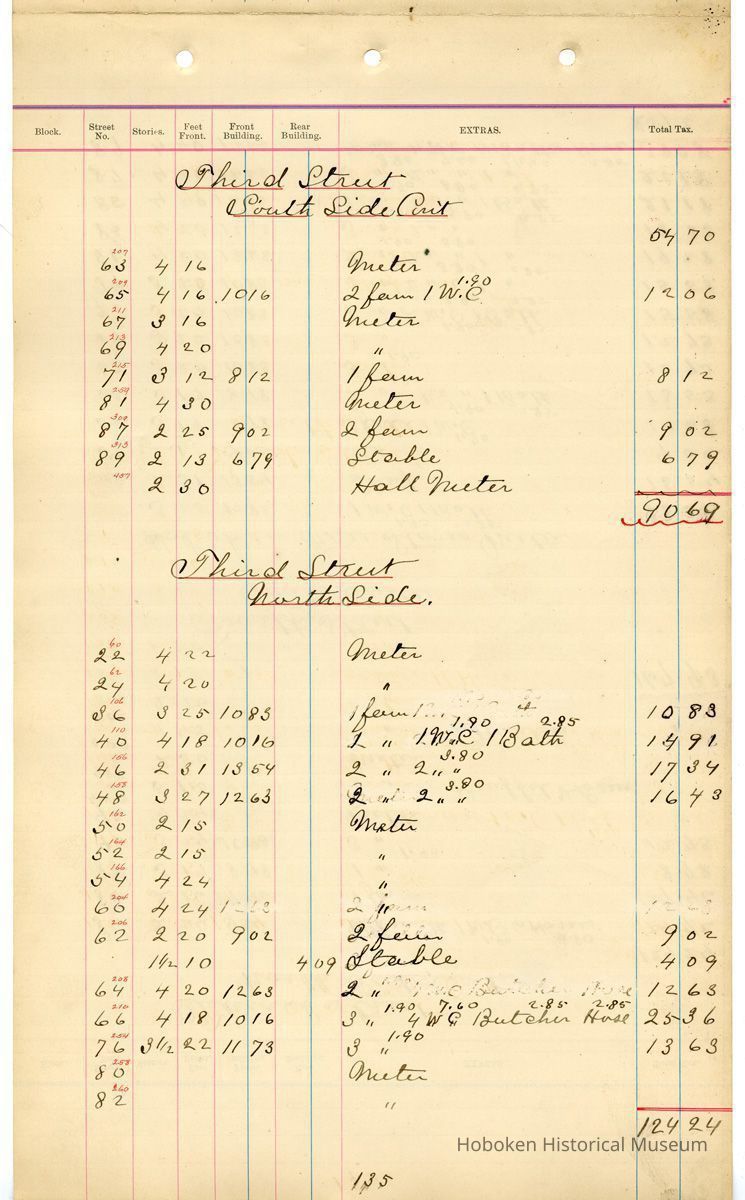 Block. Street No. Stories. Feet Front. Front Building. Rear Building. EXTRAS. Total Tax.
Third Street
South Side Con't
54 70
207 63 4 16 Meter
209 65 4 16 10 16 2 fam 1 W.C. 1.90 12 06
211 67 3 16 Meter
213 69 4 20 "
215 71 3 12 8 12 1 fam 8 12
259 81 4 30 Meter
309 87 2 25 9 02 2 fam 9 02
313 89 2 13 6 79 Stable 6 79
407 2 30 Hall Meter
90 69
Third Street
North Side.
60 22 4 22 Meter
62 24 4 20 "
106 36 3 25 10 83 1 fam 10 83
110 40 4 18 10 16 1 " 1 W.C 1.90 1 Bath 2.85 14 91
156 46 2 31 13 54 2 " 2 " " 3.80 17 34
158 48 3 27 12 63 2 " 2 " " 3.80 16 43
162 50 2 15 Meter
164 52 2 15 "
166 54 4 24 "
204 60 4 24 12 63 2 fam " 12 63
206 62 2 20 9 02 2 fam 9 02
1 1/2 10 4 09 Stable 4 09
208 64 4 20 12 63 2 " W.C Butcher Hose 12 63
210 66 4 18 10 16 3 " 1.90 4 W.C 7.60 Butcher 2.85 Hose 2.85 25 36
254 76 3 1/2 22 11 73 3 " 1.90 13 63
258 80 Meter
260 82 "
124 24
Hoboken Historical Museum
135